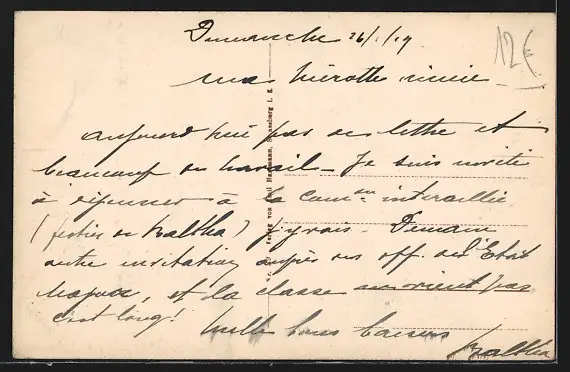 Dimanche 26/1/19
12€
ma pierrotte chérie
aujourd'hui pas de lettre et
beaucoup de travail - Je suis invité
à déjeuner à la comson interalliée
(festin de Baltha) j'y vais. Demain
autre invitation auprès des off. de l'Etat
Major, et la classe ne vient pas
c'est long! Mille bons baisers
Baltha
Verlag von Hartmann, Strassburg i. E.